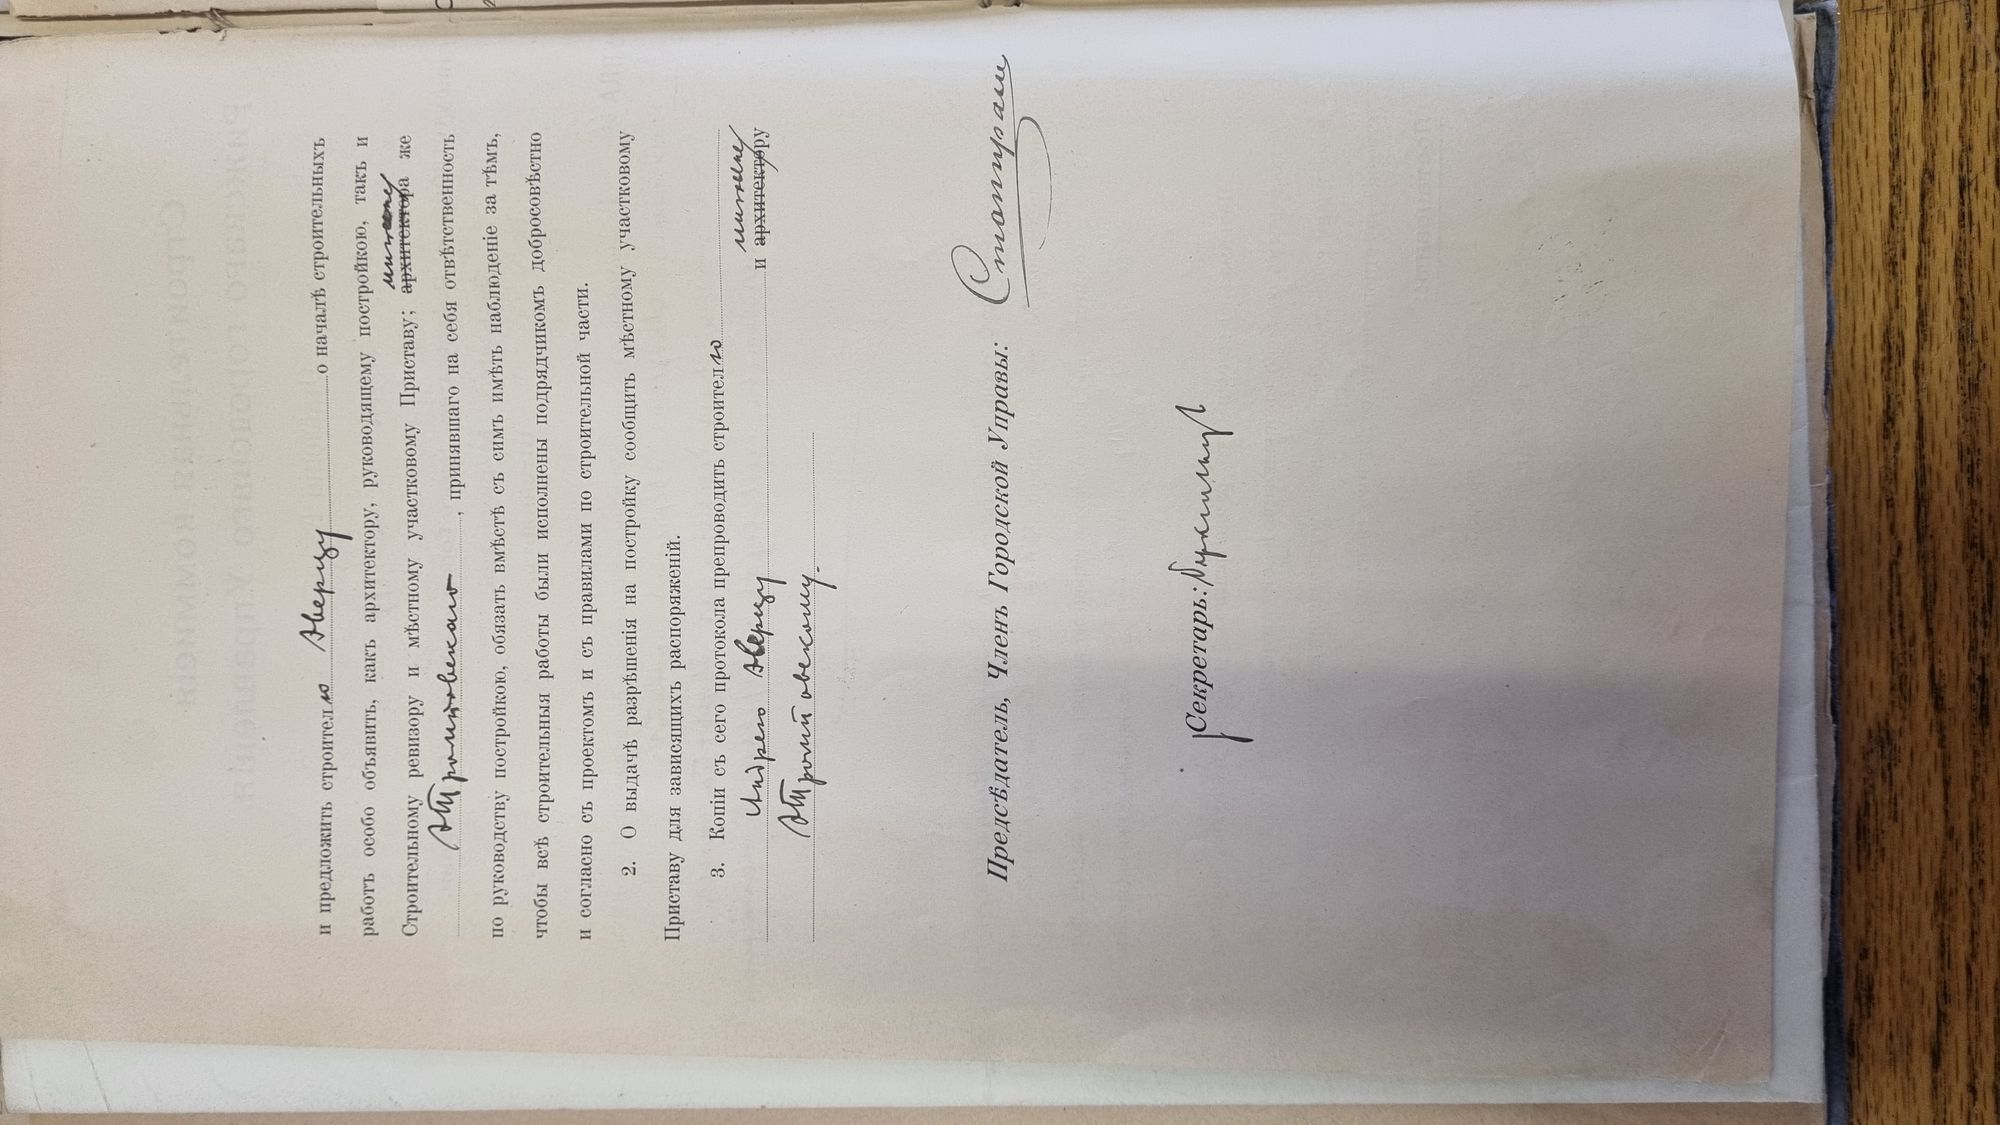 и предложить строителю Аверцу о началѣ строительныхъ
работъ особо объявить, какъ архитектору, руководящему постройкою, такъ и
Строительному ревизору и мѣстному участковому Приставу; архитектора же
, принявшаго на себя отвѣтственность
по руководству постройкою, обязать вмѣстѣ съ симъ имѣть наблюденіе за тѣмъ,
чтобы всѣ строительныя работы были исполнены подрядчикомъ добросовѣстно
и согласно съ проектомъ и съ правилами по строительной части.
2. О выдачѣ разрѣшенія на постройку сообщить мѣстному участковому
Приставу для зависящихъ распоряженій.
3. Копіи съ сего протокола препроводить строителю
Индрего Аверцу и архитектору
Предсѣдатель, Членъ Городской Управы:
Секретарь: